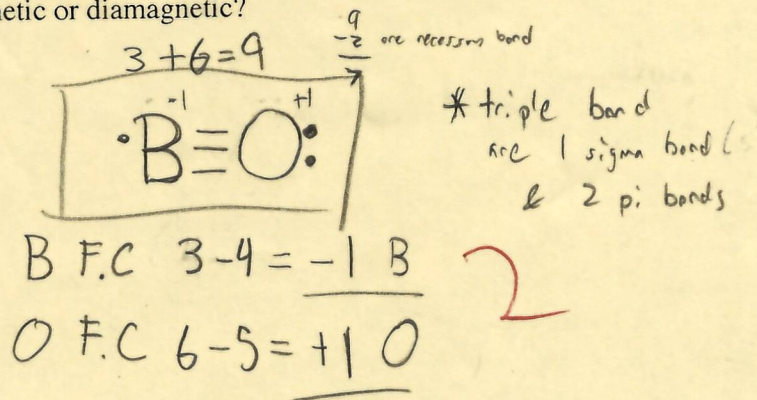 netic or diamagnetic?
3+6=9
9
-2 are necessary bond
-1 +1
·B≡O:
* triple bond
are 1 sigma bond (s
& 2 pi bonds
B F.C 3-4= -1 B
O F.C 6-5= +1 O
2